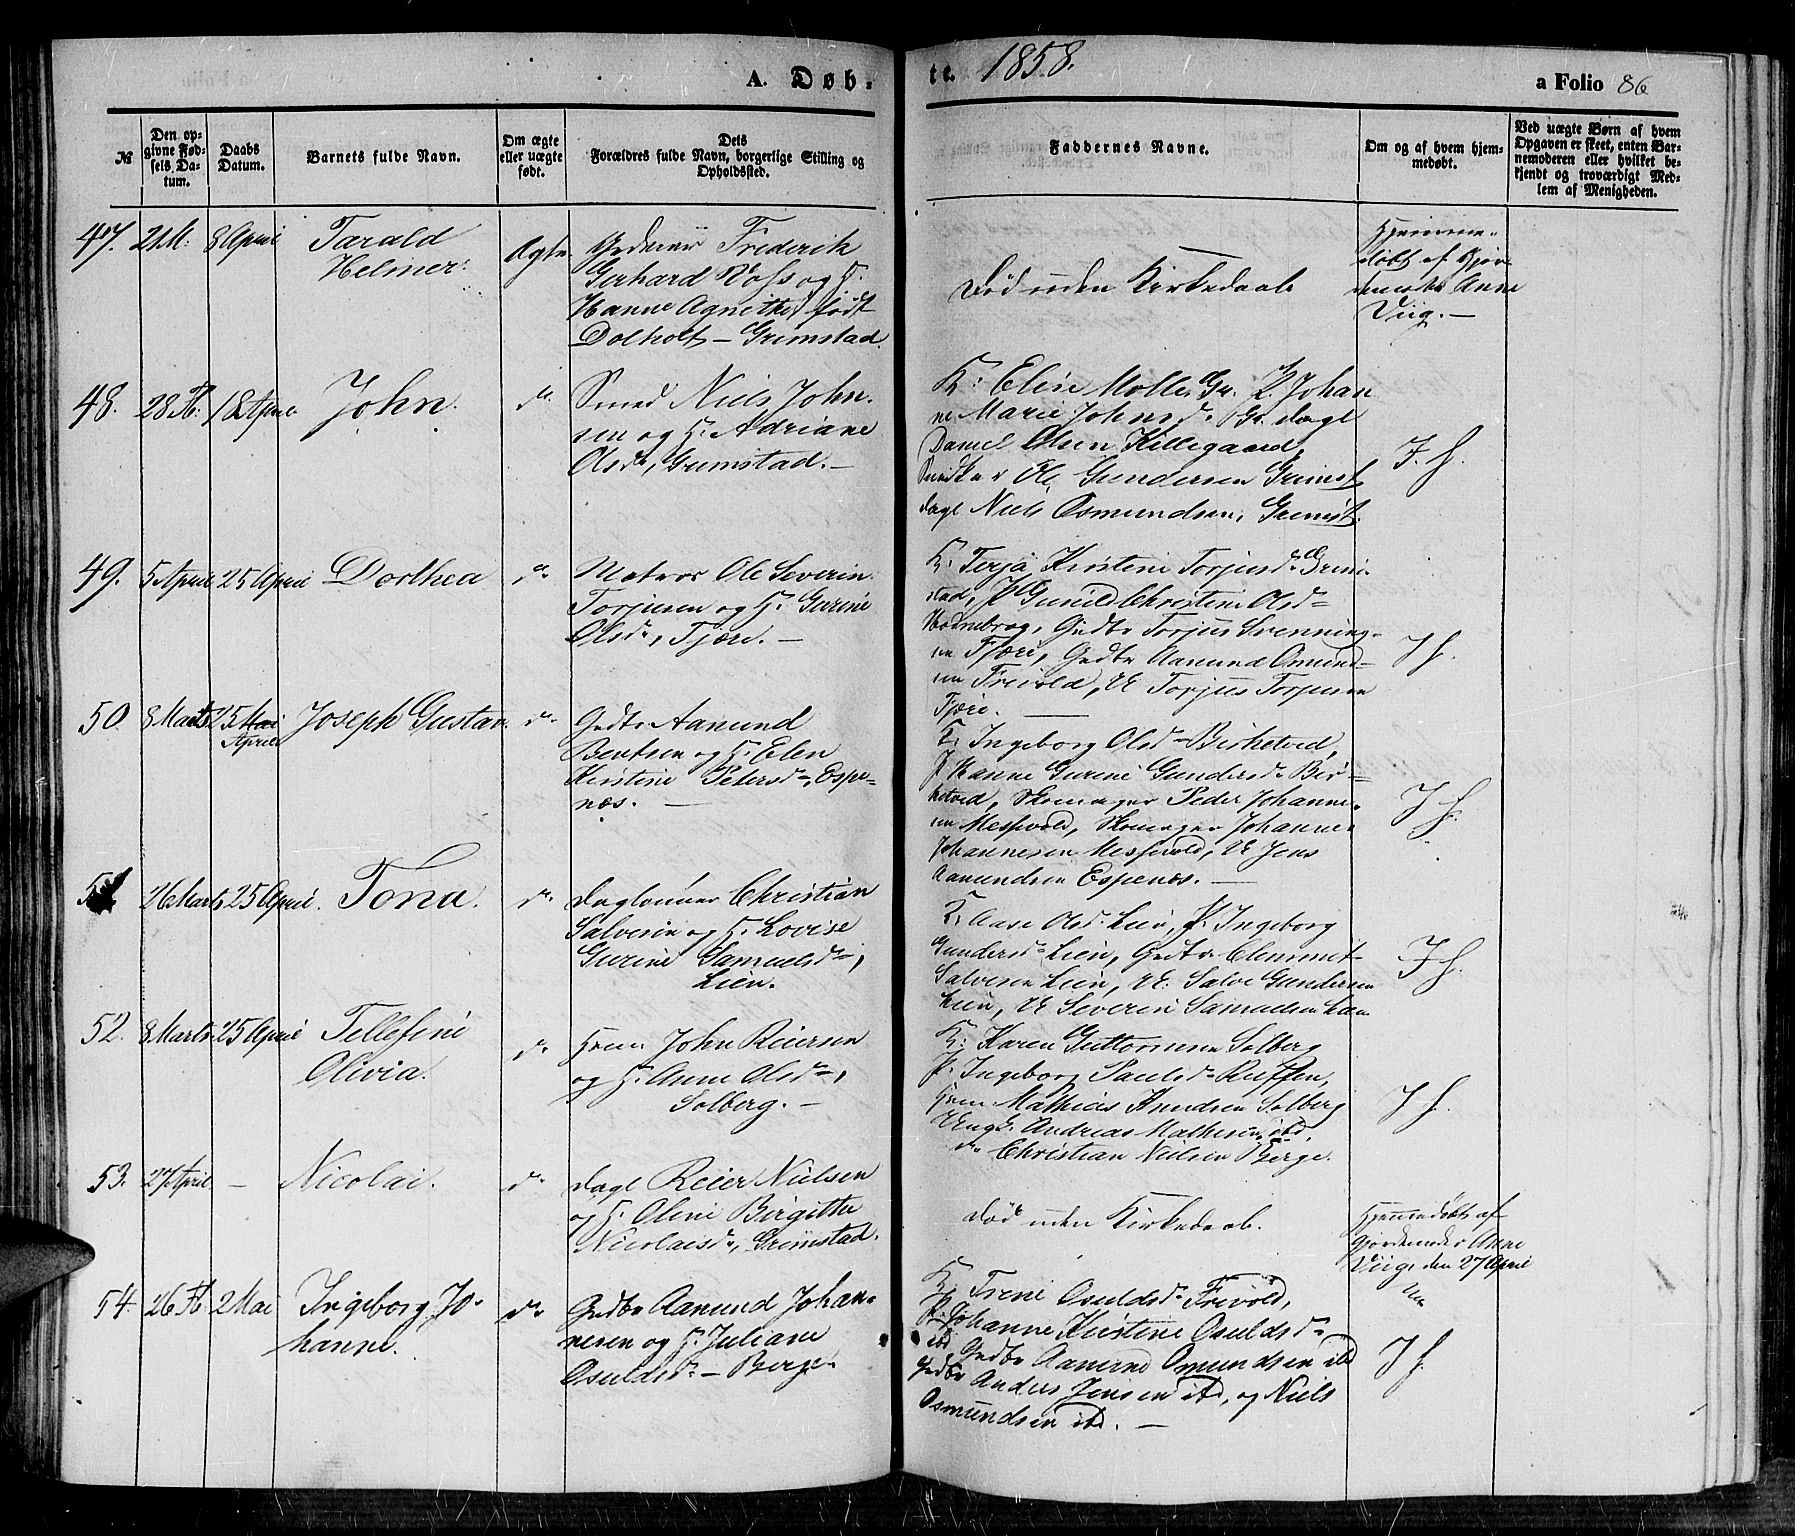 A. Døb=
te. 1858.
a Folio 86
№
Den op=
givne Fød=
sels Da=
tum.
Daabs
Datum.
Barnets fulde Navn.
Om ægte
eller uægte
født.
Dets
Forældres fulde Navn, borgerlige Stilling og
Opholdssted.
Faddernes Navne.
Om og af hvem hjem=
medøbt.
Ved uægte Børn af hvem
Opgaven er skeet, enten Bar=
nemoderen eller hvilket be=
kjendt og troværdigt Med=
lem af Menigheden.
47. 21 M: 8 April Tarald
Helmer.
Ægte
Frederik
Gerhard Voss og H.
Hanne Agnithe født
Dolholt – Grimstad.
Død uden Kirkedaab
Hjemme-
døbt af Gjor
demoder Anne
Viig. –
48. 28 F. 18 April John. do
Smed Niels John-
sen og H. Adriane
Olsdr, Grimstad. –
K: Elise Møller Gr. P. Johan
ne Marie Johnsdr Gr. dagl
Daniel Olsen Killegaard,
Snedker Ole Gundersen Grimst
dagl Niels Osmundsen, Grimst.
J. H.
49. 5 April 25 April Dorthea do
Matros Ole Severin
Torjusen og H. Gurine
Olsdr, Fjære. –
K. Terja Kirstine Torjusdr Grim
stad, P Gunild Christine Olsd=
Torjus Svenning-
en Fjære, Gdbr Aanund Osmund-
sen Frivold, U Torjus Torjusen
Fjære. –
J H.
50. 8 Marts 25 Mai
April
Joseph Gustav. do
Gdbr Aanund
Bentsen og H. Elen
Kirstine Petersdr, Espe-
næs. –
K. Ingeborg Olsd– Birketved,
P Hanne Gurine Gundersdr Bir=
ketved, Skomager Peder Johanne-
sen Messevold, Skomager Johannes
Johannesen Messevold, U Jens
Aanundsen Espenæs. –
J H.
26 Marts 25 April. Tona. do
Daglønner Christian
Salvesen og H. Lovise
Gurine Samuelsdr,
Lien.
K. Aase Olsd. Lien, P. Ingeborg
Gundersdr Lien, Gdbr Clemmet
Salvesen Lien, U. Salve Gundersen
Lien, U Severin Samuelsen
J H.
52. 8 Marts 25 April Tellefine
Olivia. do
John Reiersen
og H. Anne Olsdr,
Solberg. –
K: Karen Guttormsen Solberg
P. Ingeborg Paulsdr Ruffen,
Mathias Knudsen Solberg
Ungk. Andreas Mathisen ibd,
do Christian Nielsen Berge.
J H.
53. 27 April. – Nicolai. do
dagl Reier Nielsen
og H. Oline Birgitte
Nicolaisdr, Grimstad.
Død uden Kirkedaab.
Hjemmedøbt af
Gjordemoder Anne
Viig, den 27 April
54. 26 F. 2 Mai Ingeborg Jo-
hanne. do
Gdbr Aanund Johan-
nesen og H. Juliane
Osuldsdr – Berge.
K: Trine Osuldsdr Frivold,
P. Johanne Kirstine Osuldsdr
ibd Gdbr Aanund Osmundsen ibd
Gdbr Anders Jensen ibd, og Niels
Osmundsen ibd. –
J H.